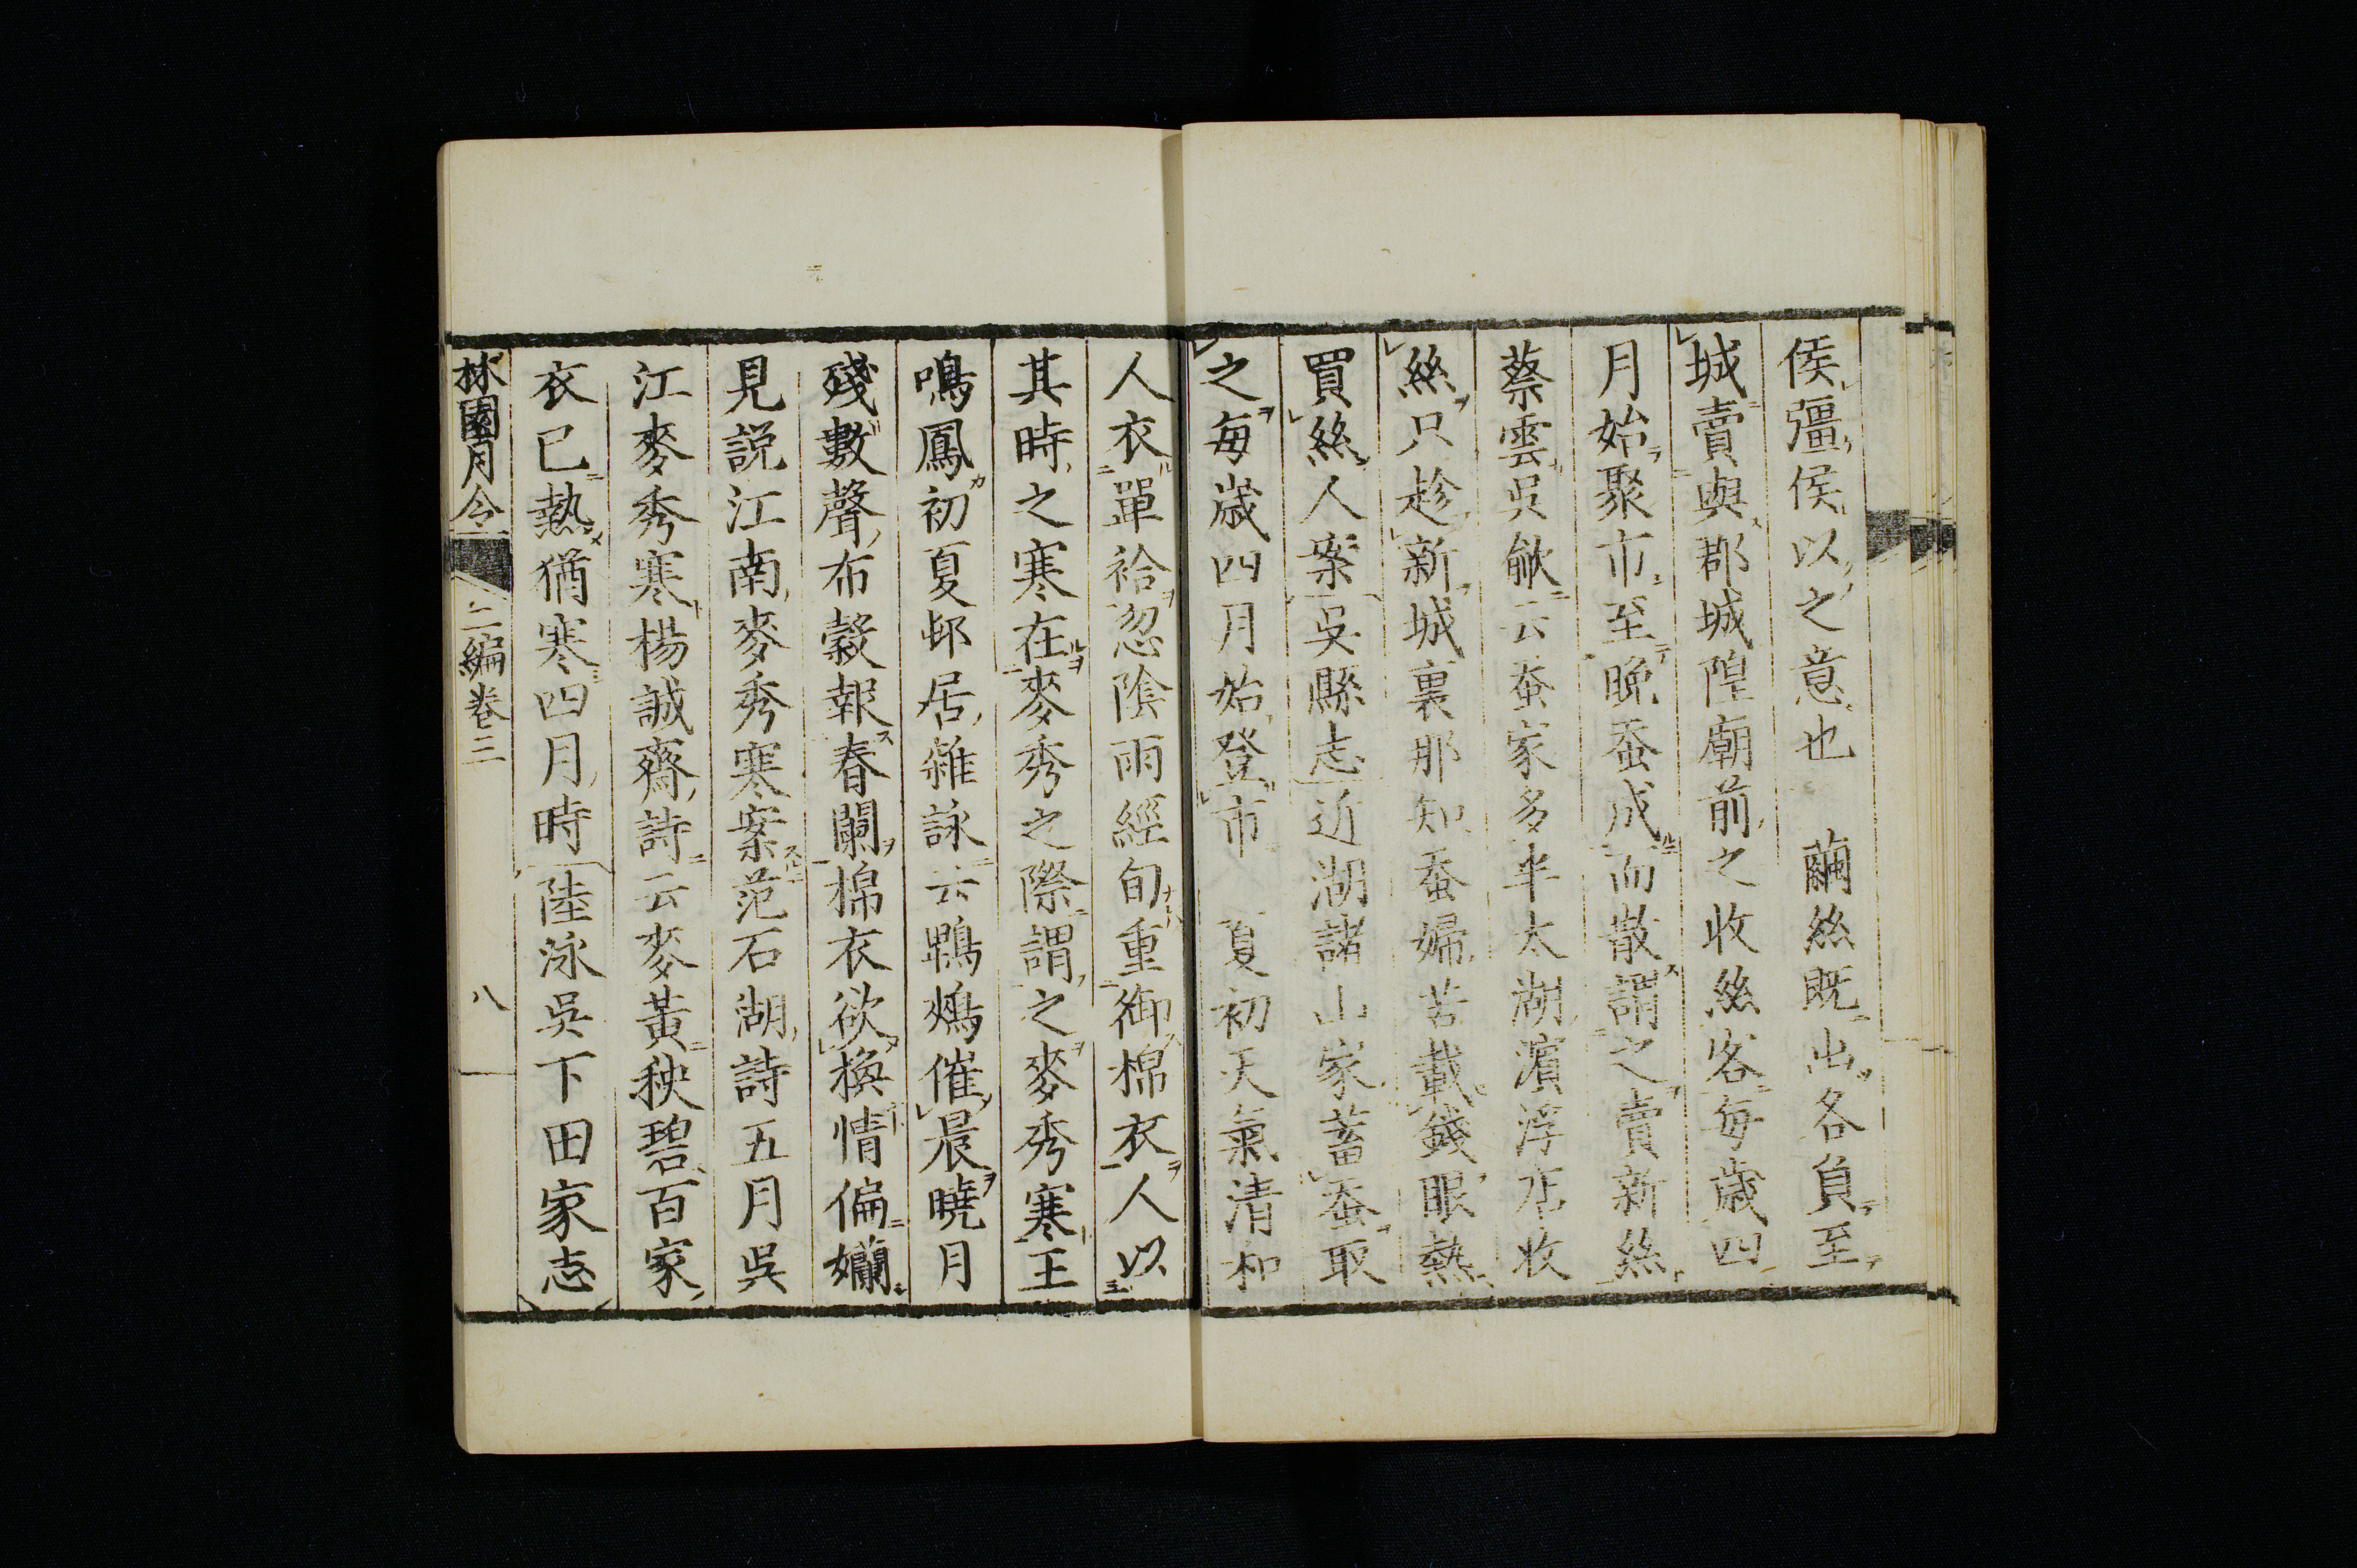 侯彊侯以之意也　繭絲既出各負至
城賣與郡城隍廟前之收絲客毎歲四
月始聚市至晩蚕成而散謂之賣新絲
蔡雲吳歈云蚕家多半太湖濱浮店收
絲只趁新城裏那知蚕婦苦載錢眼熱
買絲人案吳縣志近湖諸山家蓄蚕取
之毎歲四月始登市　夏初天氣清和
人衣單袷忽陰雨經旬重御棉衣人以
其時之寒在麥秀之際謂之麥秀寒王
鳴鳳初夏邨居雜詠云鵯鵊催晨曉月
殘數聲布穀報春闌棉衣欲換情偏嬾
見説江南麥秀寒案范石湖詩五月吳
江麥秀寒楊誠齋詩云麥黃秧碧百家
衣已熱猶寒四月時陸泳吳下田家志
林園月令
二編卷三
八